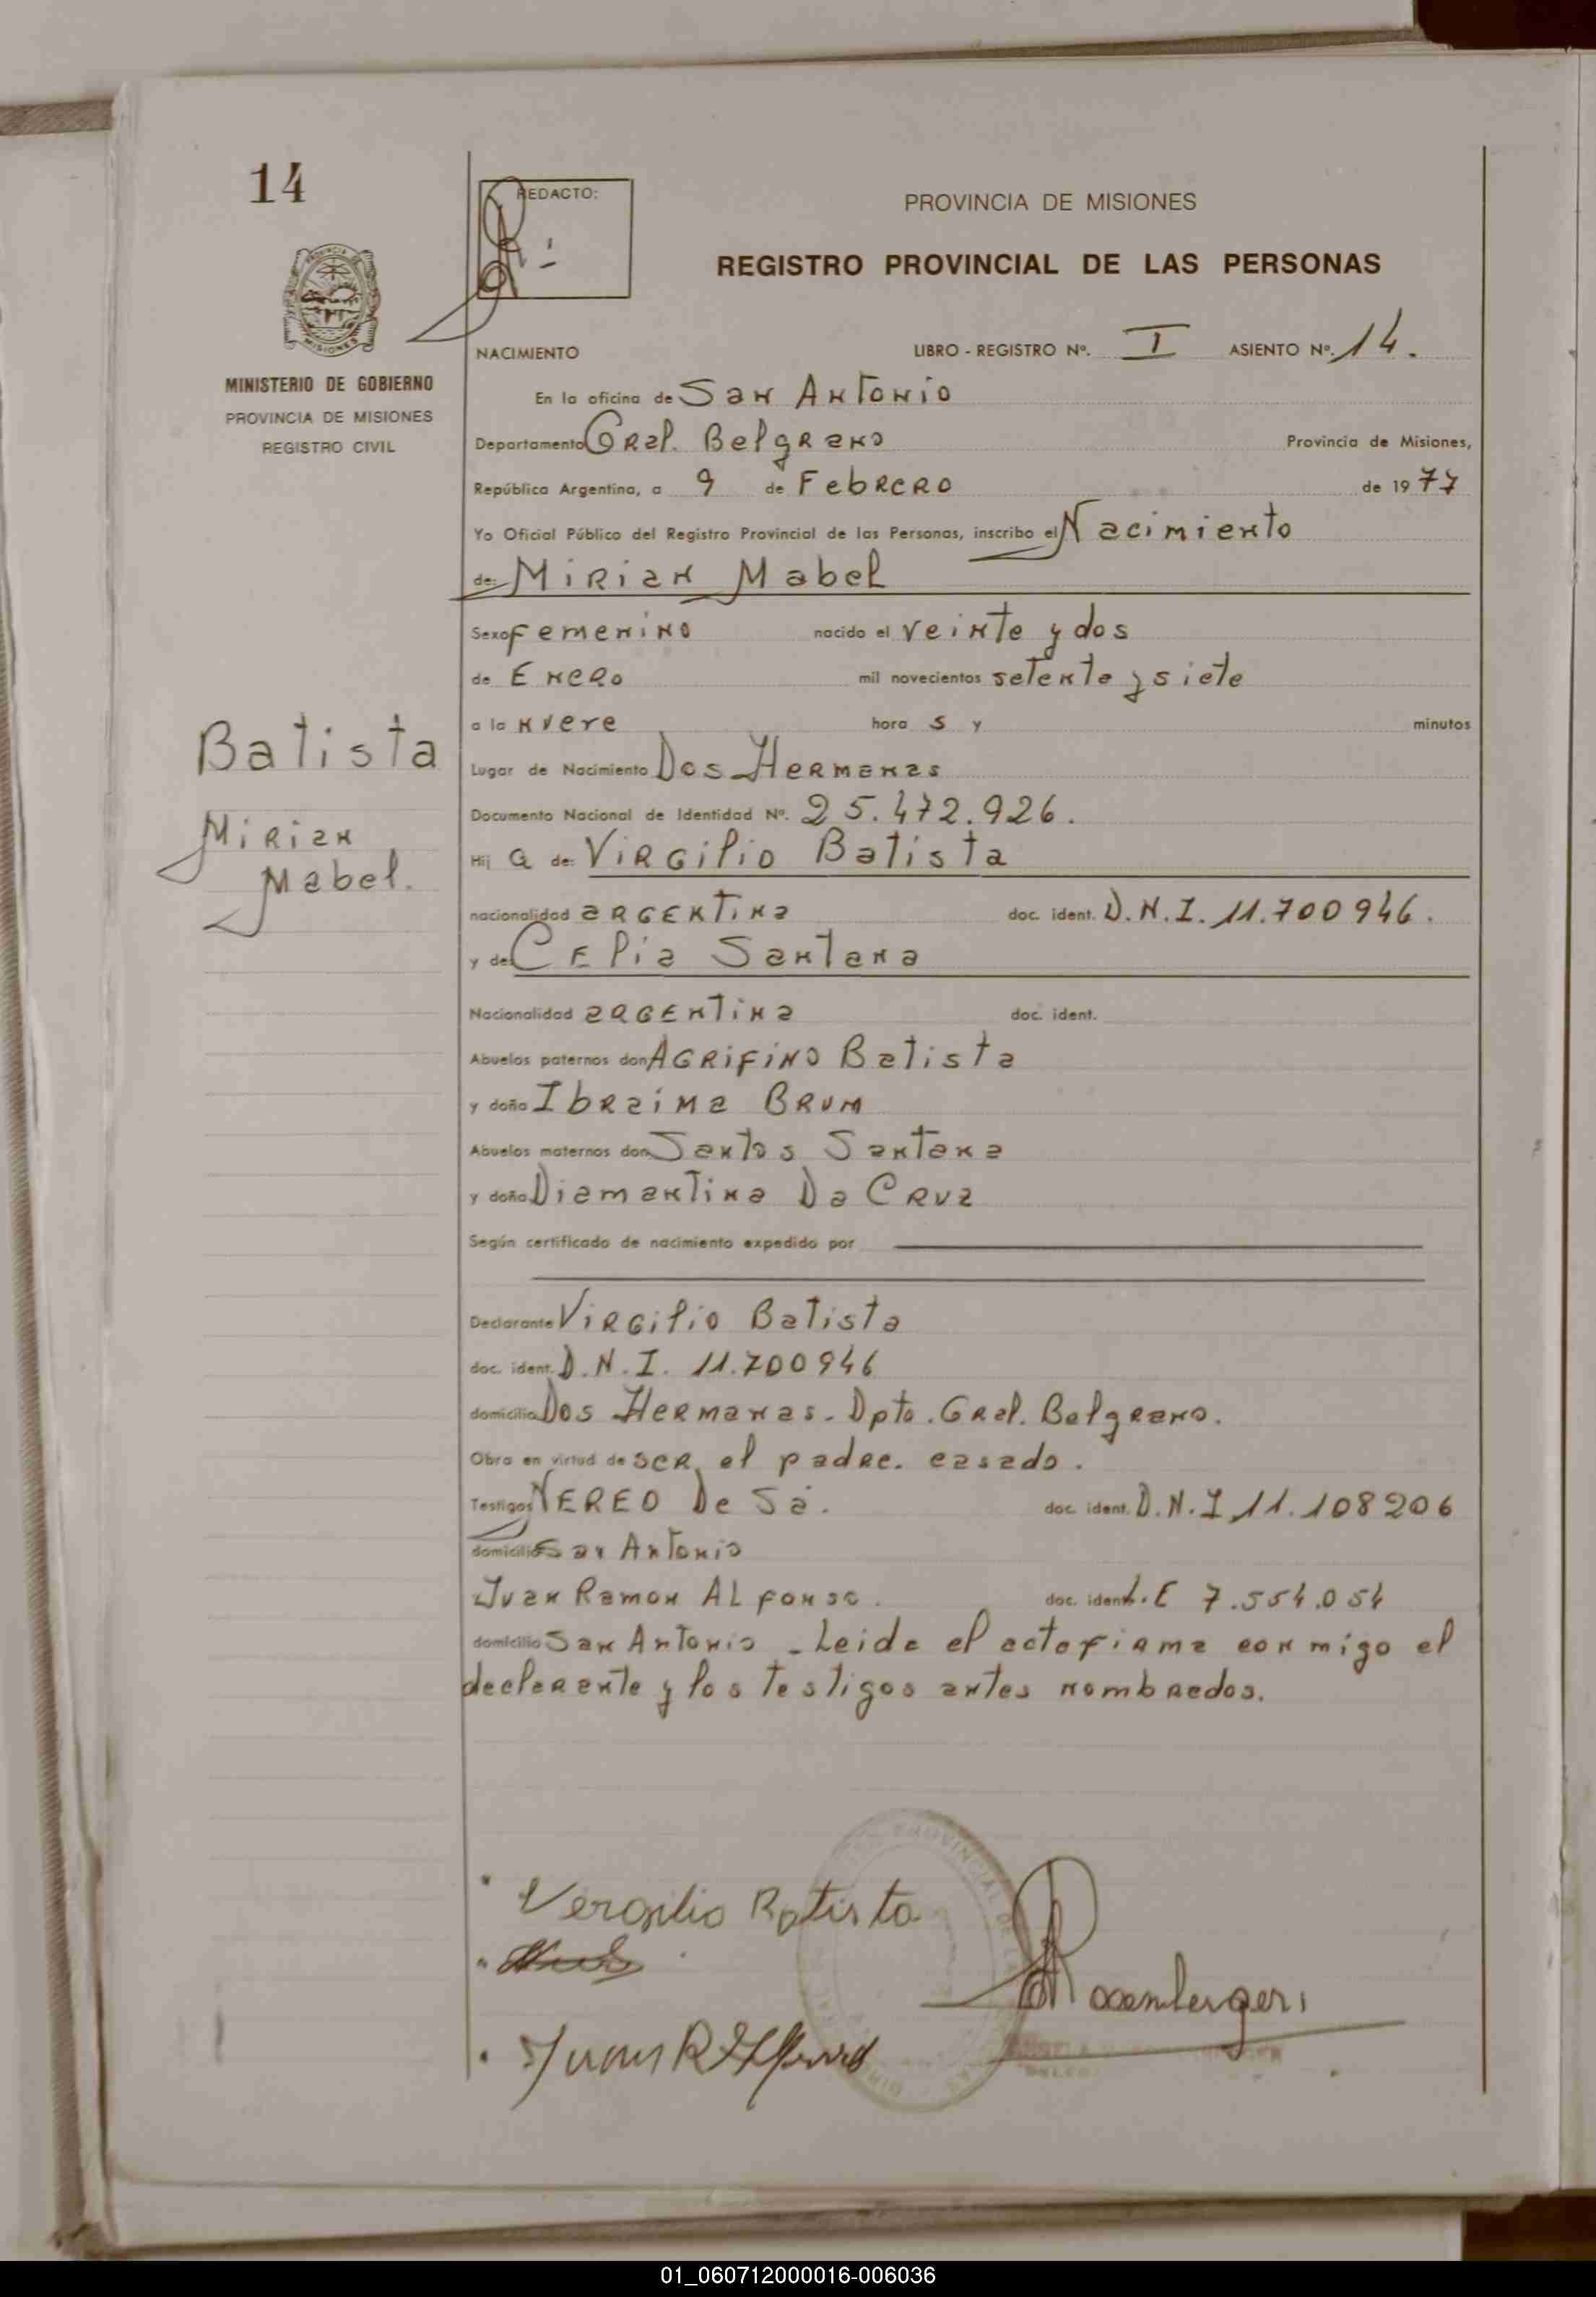 14
REDACTO:
PROVINCIA DE MISIONES
REGISTRO PROVINCIAL DE LAS PERSONAS
MISIONES
MINISTERIO DE GOBIERNO
PROVINCIA DE MISIONES
REGISTRO CIVIL
NACIMIENTO LIBRO - REGISTRO Nº. I ASIENTO Nº. 14.
En la oficina de San Antonio
Departamento Gral. Belgrano Provincia de Misiones,
República Argentina, a 9 de Febrero de 1977
Yo Oficial Público del Registro Provincial de las Personas, inscribo el Nacimiento
de: Mirian Mabel
Sexo Femenino nacido el veinte y dos
de Enero mil novecientos setenta y siete
a la nueve hora s y minutos
Batista
Mirian
Mabel.
Lugar de Nacimiento Dos Hermanas
Documento Nacional de Identidad Nº. 25.472.926.
Hij a de: Virgilio Batista
nacionalidad argentina doc. ident. D.N.I. 11.700946.
y de: Celia Santana
Nacionalidad argentina doc. ident.
Abuelos paternos don Agrifino Batista
y doña Ibraima Brum
Abuelos maternos don Santos Santana
y doña Diamantina Da Cruz
Según certificado de nacimiento expedido por
Declarante Virgilio Batista
doc. ident. D.N.I. 11.700946
domicilio Dos Hermanas - Dpto. Gral. Belgrano.
Obra en virtud de ser el padre. casado.
Testigos NEREO De Sá. doc. ident. D.N.I 11.108206
domicilio San Antonio
Juan Ramon Alfonso. doc. ident. L.E 7.554.054
domicilio San Antonio - Leida el acta firma conmigo el
declarante y los testigos antes nombrados.
Vergilio Batista
01_060712000016-006036